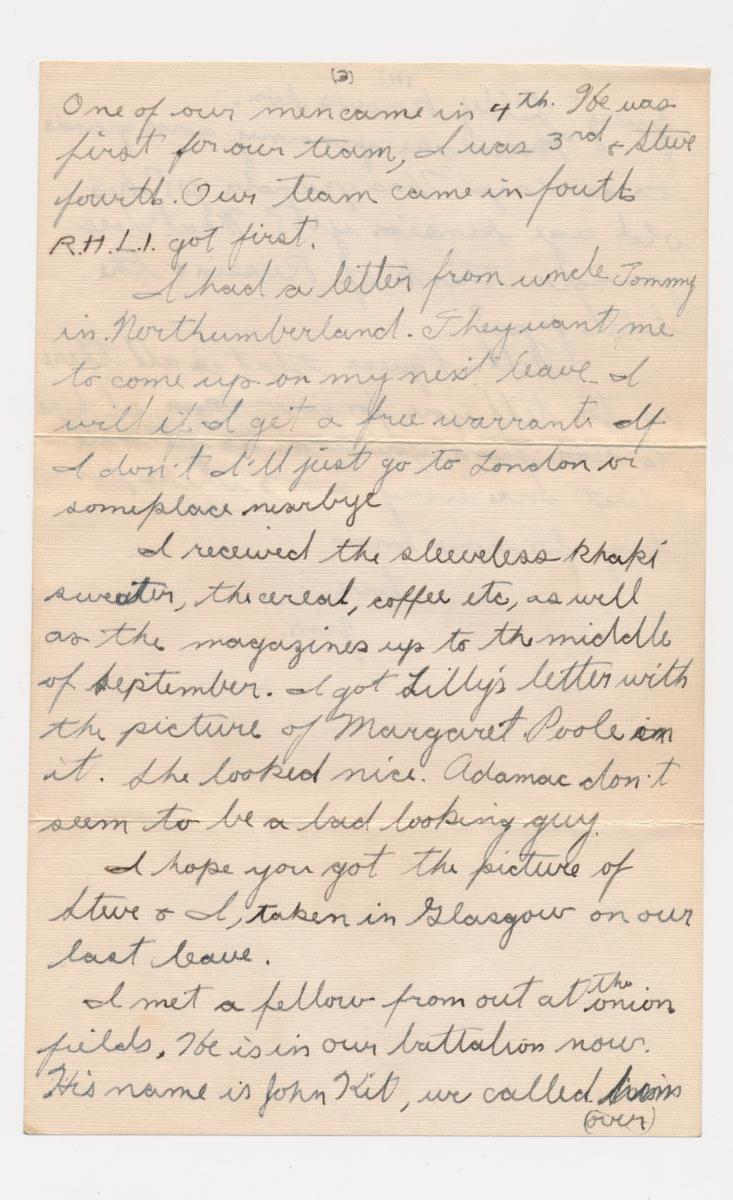 (3)
One of our men came in 4th. He was
first for our team, I was 3rd & Steve
fourth. Our team came in fouth
R.H.L.I. got first.
I had a letter from uncle Tommy
in Northumberland. They want me
to come up on my next leave. I
will if I get a free warrant. If
I don't I'll just go to London or
someplace nearbye
I received the sleeveless khaki
sweater, the cereal, coffee etc, as well
as the magazines up to the middle
of September. I got Lilly's letter with
the picture of Margaret Poole in
it. She looked nice. Adamac don't
seem to be a bad looking guy.
I hope you got the picture of
Steve & I, taken in Glasgow on our
last leave.
I met a fellow from out at the onion
fields, He is in our battalion now.
His name is John Kit, we called
(over)